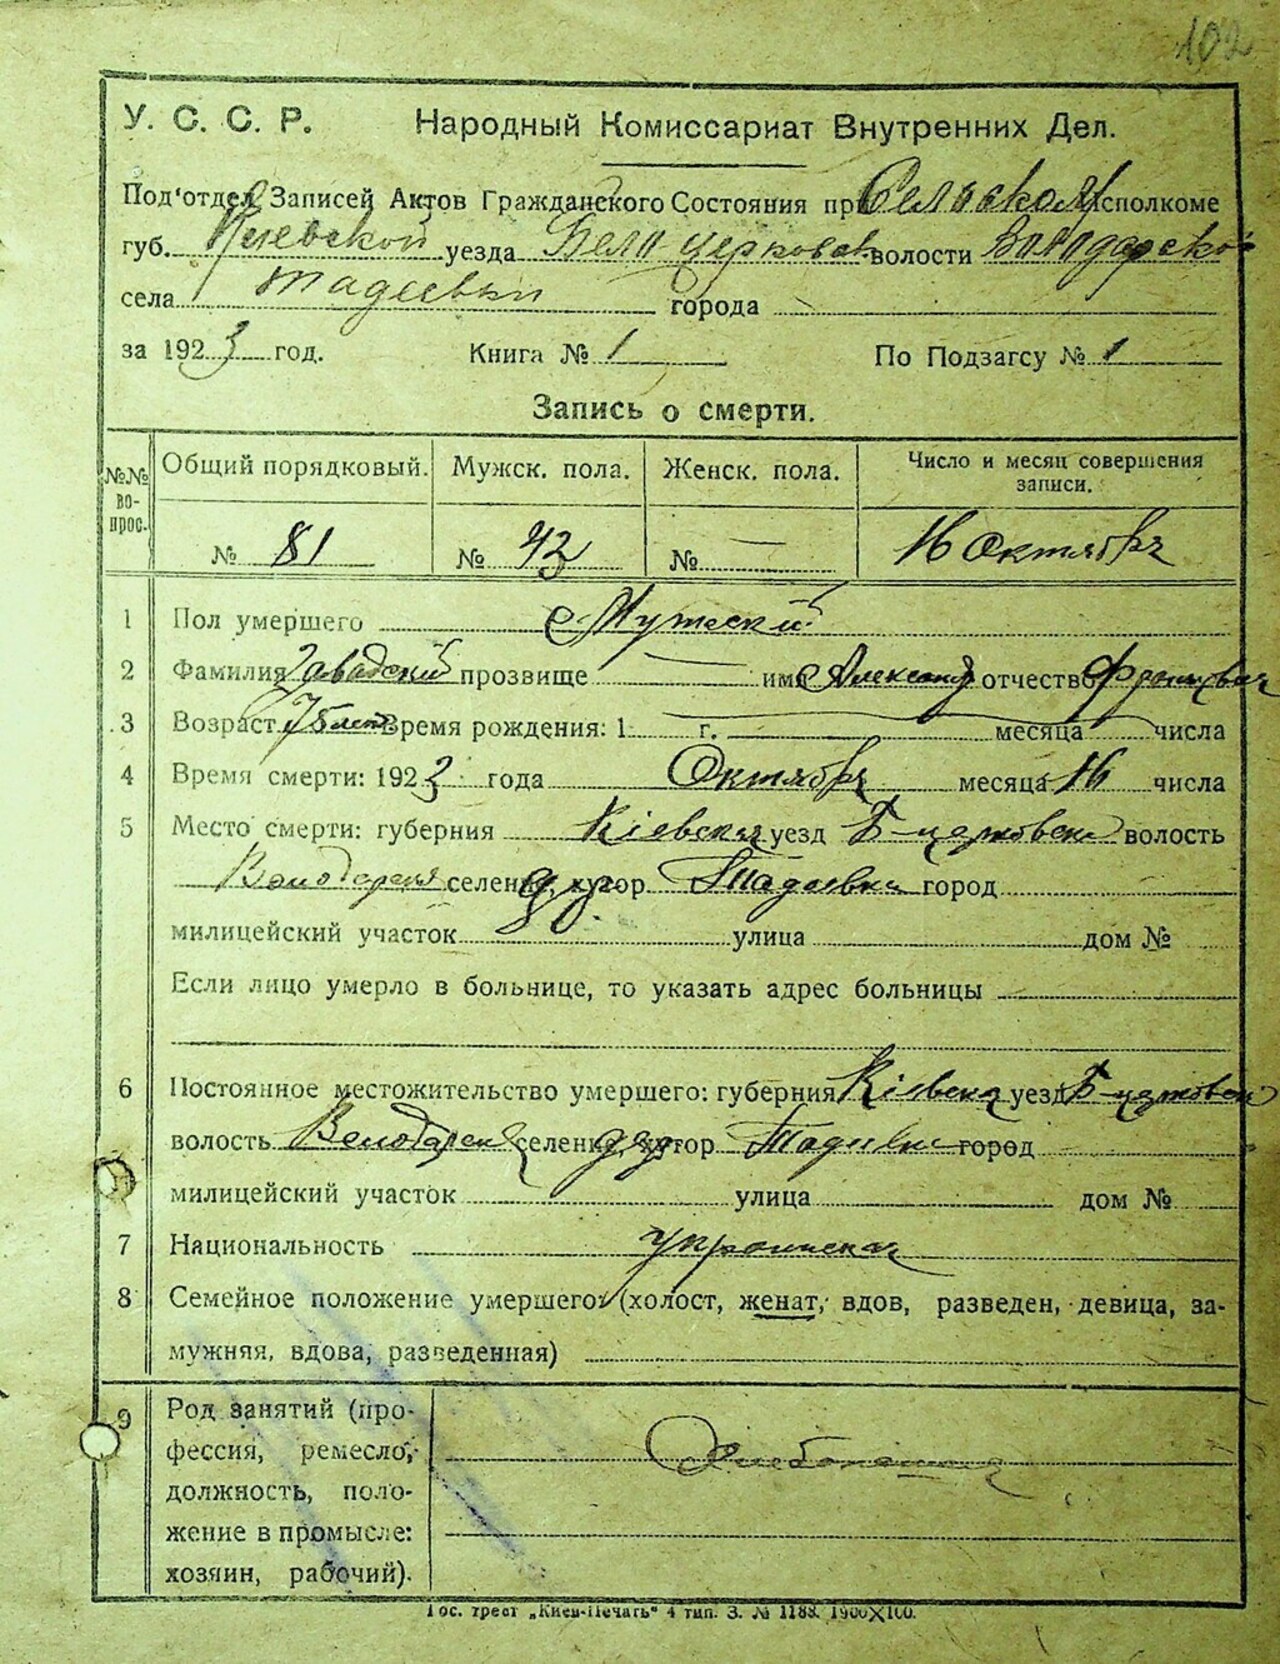 102
У. С. С. Р. Народный Комиссариат Внутренних Дел.
Под'отдел Записей Актов Гражданского Состояния при Сельском Исполкоме
губ. Киевской уезда Бело-церковск волости Володарской
села Тадеевки города
за 1923 год. Книга № 1 По Подзагсу № 1
Запись о смерти.
№№ вопрос. Общий порядковый. Мужск. пола. Женск. пола. Число и месяц совершения записи.
№ 81 № 43 № — 16 Октября
1 Пол умершего Мужеский
2 Фамилия Завадский прозвище — имя Александр отчество Францович
3 Возраст 75 лет Время рождения: 1 г. месяца числа
4 Время смерти: 1923 года Октября месяца 16 числа
5 Место смерти: губерния Кіевская уезд Б-церковск волость
Володарская селение, хутор Тадеевка город
милицейский участок улица дом №
Если лицо умерло в больнице, то указать адрес больницы
6 Постоянное местожительство умершего: губерния Кіевская уезд Б-церковск
волость Володарская селение, хутор Тадеевка город
милицейский участок улица дом №
7 Национальность украинская
8 Семейное положение умершего: (холост, женат, вдов, разведен, девица, за-
мужняя, вдова, разведенная)
9 Род занятий (про-
фессия, ремесло, Хлебопашец
должность, поло-
жение в промысле:
хозяин, рабочий).
Гос. трест „Киев-Печать“ 4 тип. З. № 1188. 1900X100.